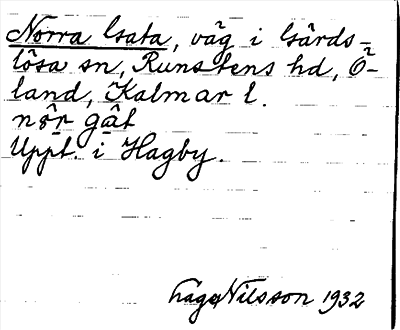 Norra Gata, väg i Gärds-
lösa sn, Runstens hd, Ö-
land, Kalmar l.
nơr gat
Uppt. i Hagby.
Hage Nilsson 1932